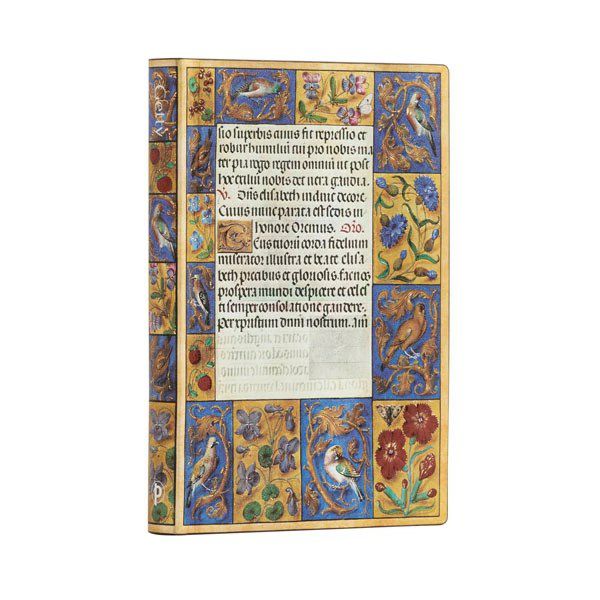 Getty
sio superbis fit repressio et
robur humiliū cui pro nobis ma
ter pia rogo regem omniū ut post
hoc exiliū nobis det vera gaudia.
V. elisabeth indue decore
Cuius nunc parata est sedis in
honore Oremus. Oro.
Eus tuorū corda fidelium
miserator illustra et beate elisa
beth precibus et gloriosis. fac nos
prospera mundi despicere et celes
ti semper consolatione gaudere.
Per xpristum dnm nostrum. am
p